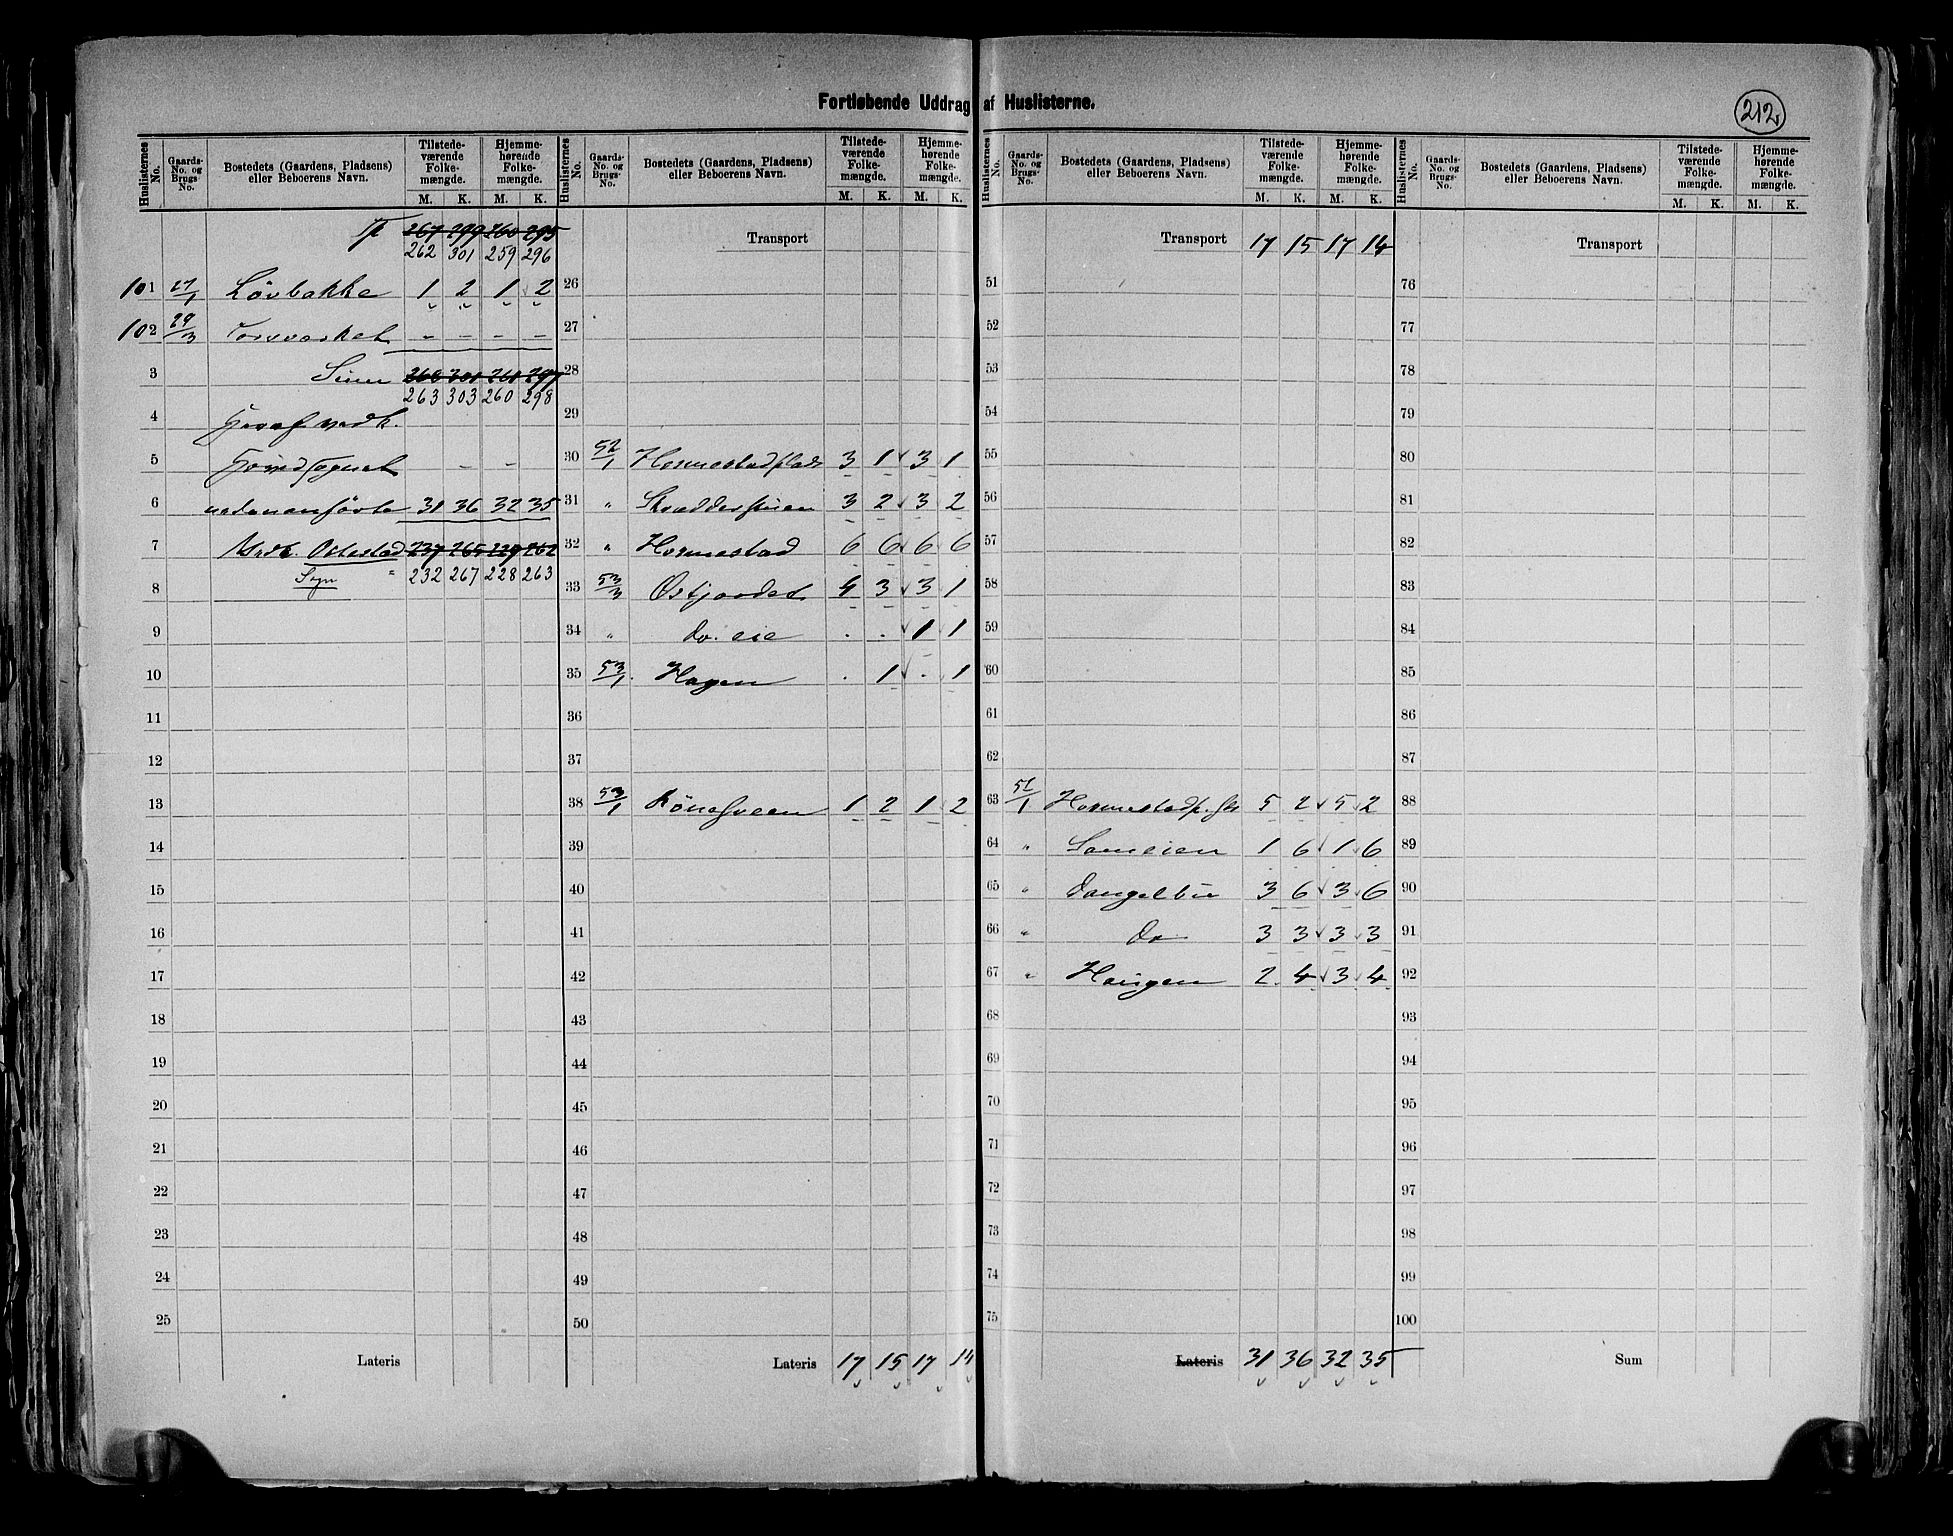 Fortløbende Uddrag af Huslisterne.
212
Huslisternes No. Gaards-No. og Brugs-No. Bostedets (Gaardens, Pladsens) eller Beboerens Navn. Tilstede-værende Folke-mængde. M. K. Hjemme-hørende Folke-mængde. M. K.
Huslisternes No. Gaards-No. og Brugs-No. Bostedets (Gaardens, Pladsens) eller Beboerens Navn. Tilstede-værende Folke-mængde. M. K. Hjemme-hørende Folke-mængde. M. K.
Huslisternes No. Gaards-No. og Brugs-No. Bostedets (Gaardens, Pladsens) eller Beboerens Navn. Tilstede-værende Folke-mængde. M. K. Hjemme-hørende Folke-mængde. M. K.
Huslisternes No. Gaards-No. og Brugs-No. Bostedets (Gaardens, Pladsens) eller Beboerens Navn. Tilstede-værende Folke-mængde. M. K. Hjemme-hørende Folke-mængde. M. K.
267 299 260 295
262 301 259 296
101 27/1 Løvbakke 1 2 1 2
102 29/3 - - - -
3 Sum 268 301 261 297
263 303 260 298
4 Heraf vedk.
5 Hovedsognet - -
6 nedenanførte 31 36 32 35
7 Vedk. 237 265 229 262
8 Sogn " 232 267 228 263
9
10
11
12
13
14
15
16
17
18
19
20
21
22
23
24
25
Lateris
Transport
26
27
28
29
30 52/1 Hornestadplads 3 1 3 1
31 " Skrædderstuen 3 2 3 2
32 " Hornestad 6 6 6 6
33 53/3 Østjordet 4 3 3 1
34 " do. eie . . 1 1
35 53/1 Hagen . 1 . 1
36
37
38 53/1 2 1 2
39
40
41
42
43
44
45
46
47
48
49
50
Lateris 17 15 17 14
Transport 17 15 17 14
51
52
53
54
55
56
57
58
59
60
61
62
63 52/1 5 2 5 2
64 " 1 6 1 6
65 " 3 6 3 6
66 " do 3 3 3 3
67 " Haugen 2 4 3 4
68
69
70
71
72
73
74
75
Lateris 31 36 32 35
Transport
76
77
78
79
80
81
82
83
84
85
86
87
88
89
90
91
92
93
94
95
96
97
98
99
100
Sum